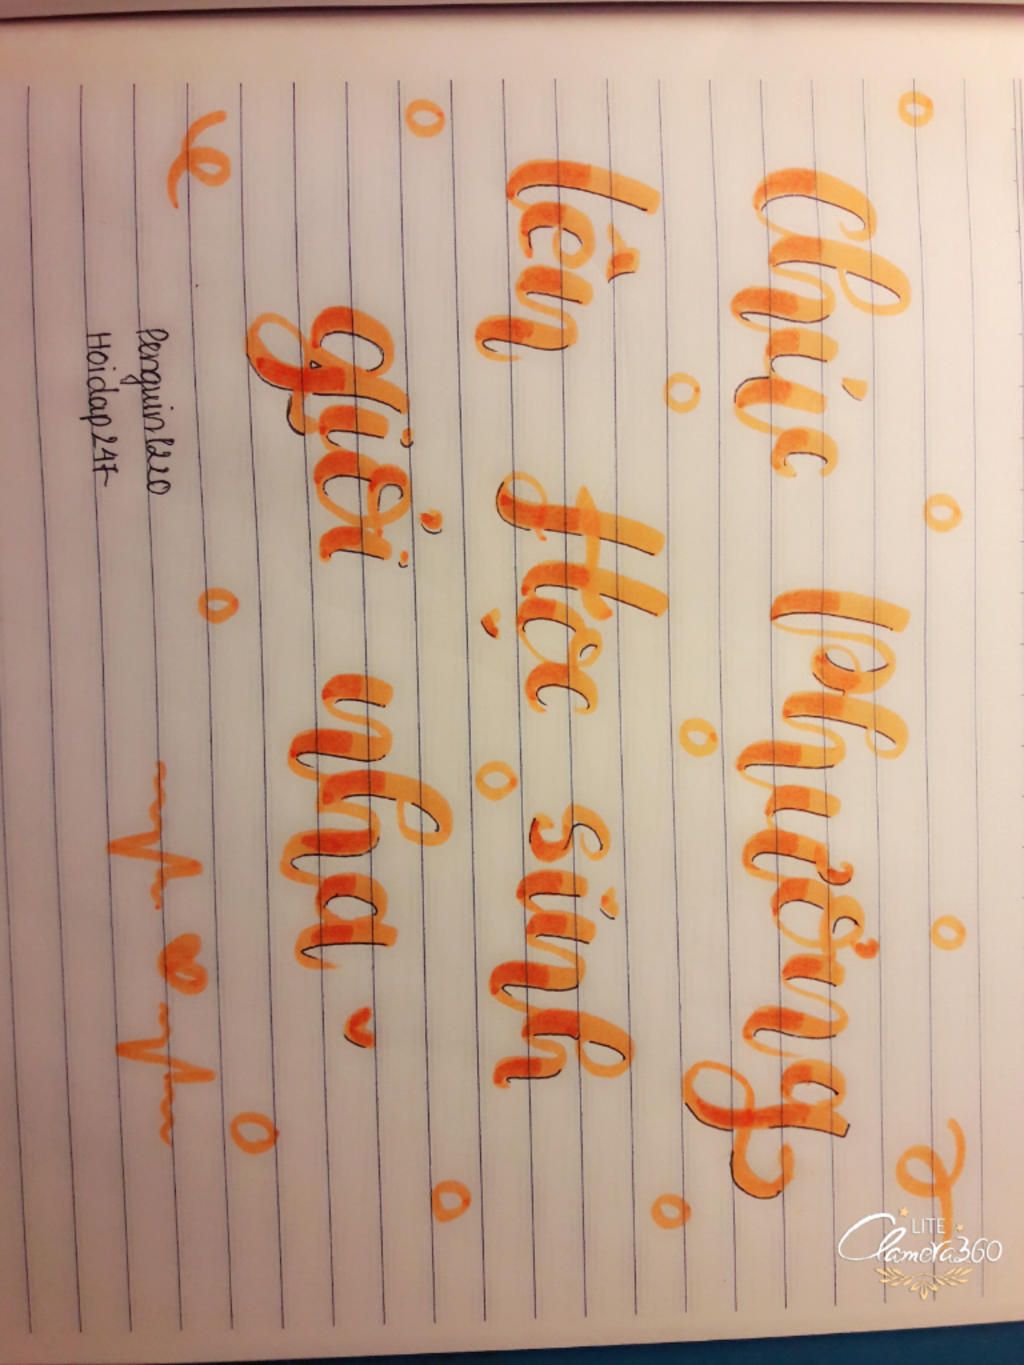 Chúc Phương
lên Học sinh
giỏi nha
Penguin1220
Hoidap247
LITE
Camera360